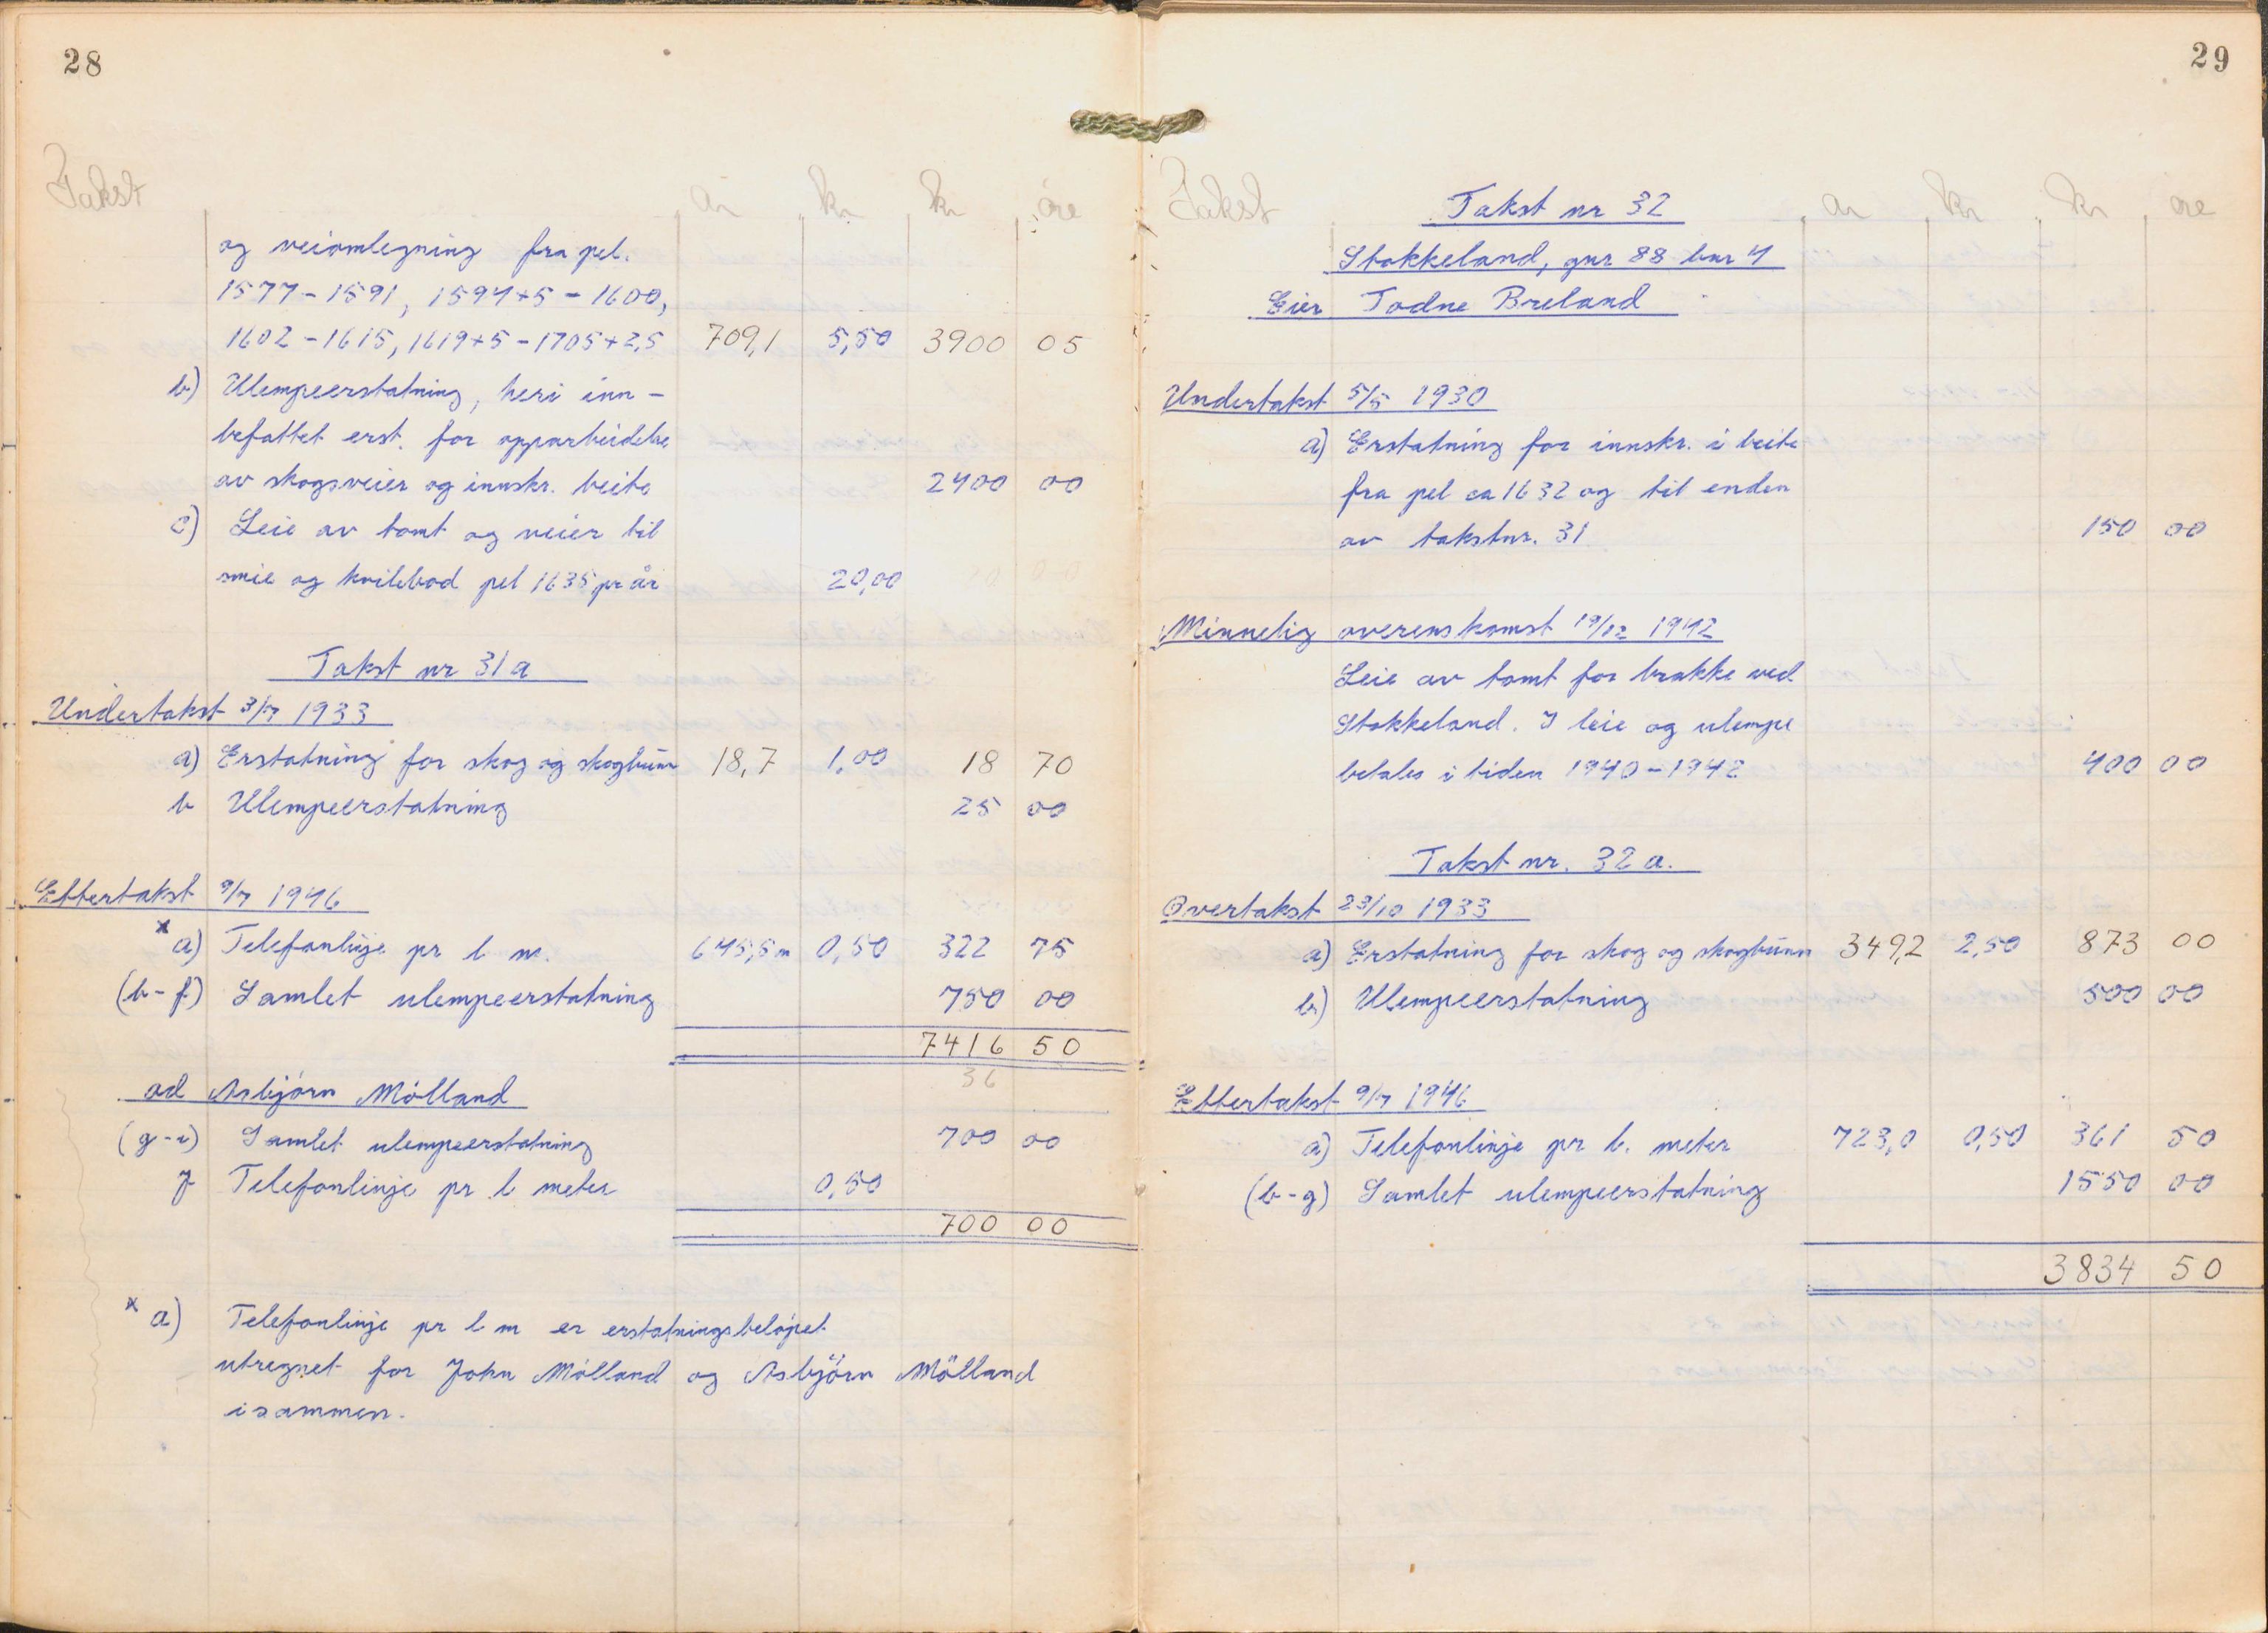 28
Takst ar kr kr øre
og veiomlegning fra pel.
1577 - 1591, 1594+5 - 1600,
1602 - 1615, 1619+5 - 1705+2,5 709,1 5,50 3900 05
b) Ulempeerstatning, heri inn-
befattet erst. for opparbeidelse
av skogsveier og innskr. beite 2400 00
c) Leie av tomt og veier til
smie og kvilebod pel 1635 pr år 20,00
Takst nr 31 a
Undertakst 3/7 1933
a) Erstatning for skog og skogbunn 18,7 1,00 18 70
b Ulempeerstatning 25 00
Ettertakst 9/7 1946
x a) Telefonlinje pr l m. 645,5 m 0,50 322 75
(b-f) Samlet ulempeerstatning 750 00
7416 50
36
ad Asbjørn Mølland
(g-i) Samlet ulempeerstatning 700 00
j Telefonlinje pr l meter 0,50
700 00
x a) Telefonlinje pr l m er erstatningsbeløpet
utregnet for John Mølland og Asbjörn Mölland
isammen.
29
Takst ar kr kr øre
Takst nr 32
Stokkeland, gnr 88 bnr 4
Eier Todne Breland
Undertakst 5/5 1930
a) Erstatning for innskr. i beite
fra pel ca 1632 og til enden
av takstnr. 31 150 00
Minnelig overenskomst 19/12 1942
Leie av tomt for brakke ved
Stokkeland. I leie og ulempe
betales i tiden 1940 - 1942 400 00
Takst nr. 32 a.
Overtakst 23/10 1933
a) Erstatning for skog og skogbunn 349,2 2,50 873 00
b) Ulempeerstatning 500 00
Ettertakst 9/7 1946
a) Telefonlinje pr l. meter 723,0 0,50 361 50
(b-g) Samlet ulempeerstatning 1550 00
3834 50